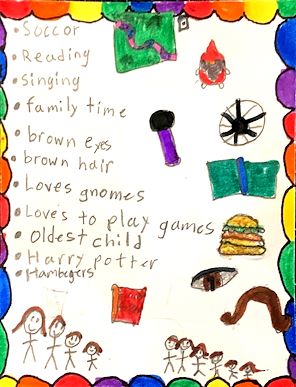 • Soccor
• Reading
• Singing
• family time
• brown eyes
• brown hair
• Loves gnomes
• Loves to play games
• Oldest child
• Harry potter
• Hambegers